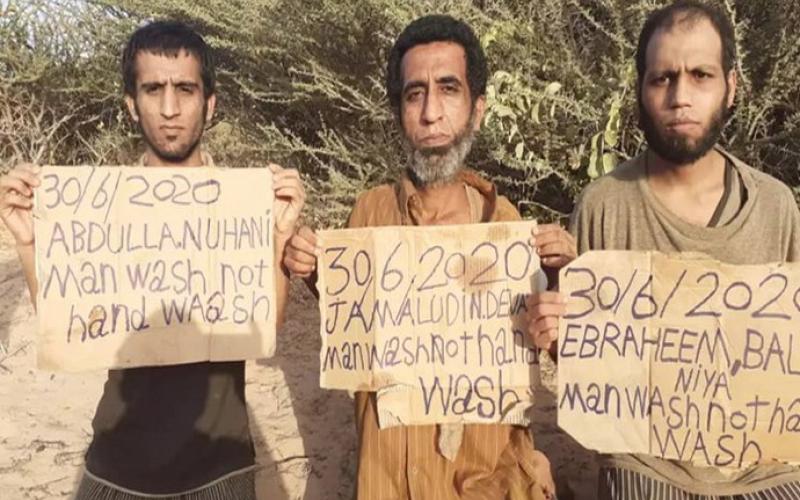 30/6/2020
ABDULLA.NUHANI
man wash not
hand WAASH
30,6,2020
JAMALUDIN.DEVA
man WASh not hand
WASh
30/6/2020
EBRAHEEM,BAL
NIYA
man WASh not ha
WASh